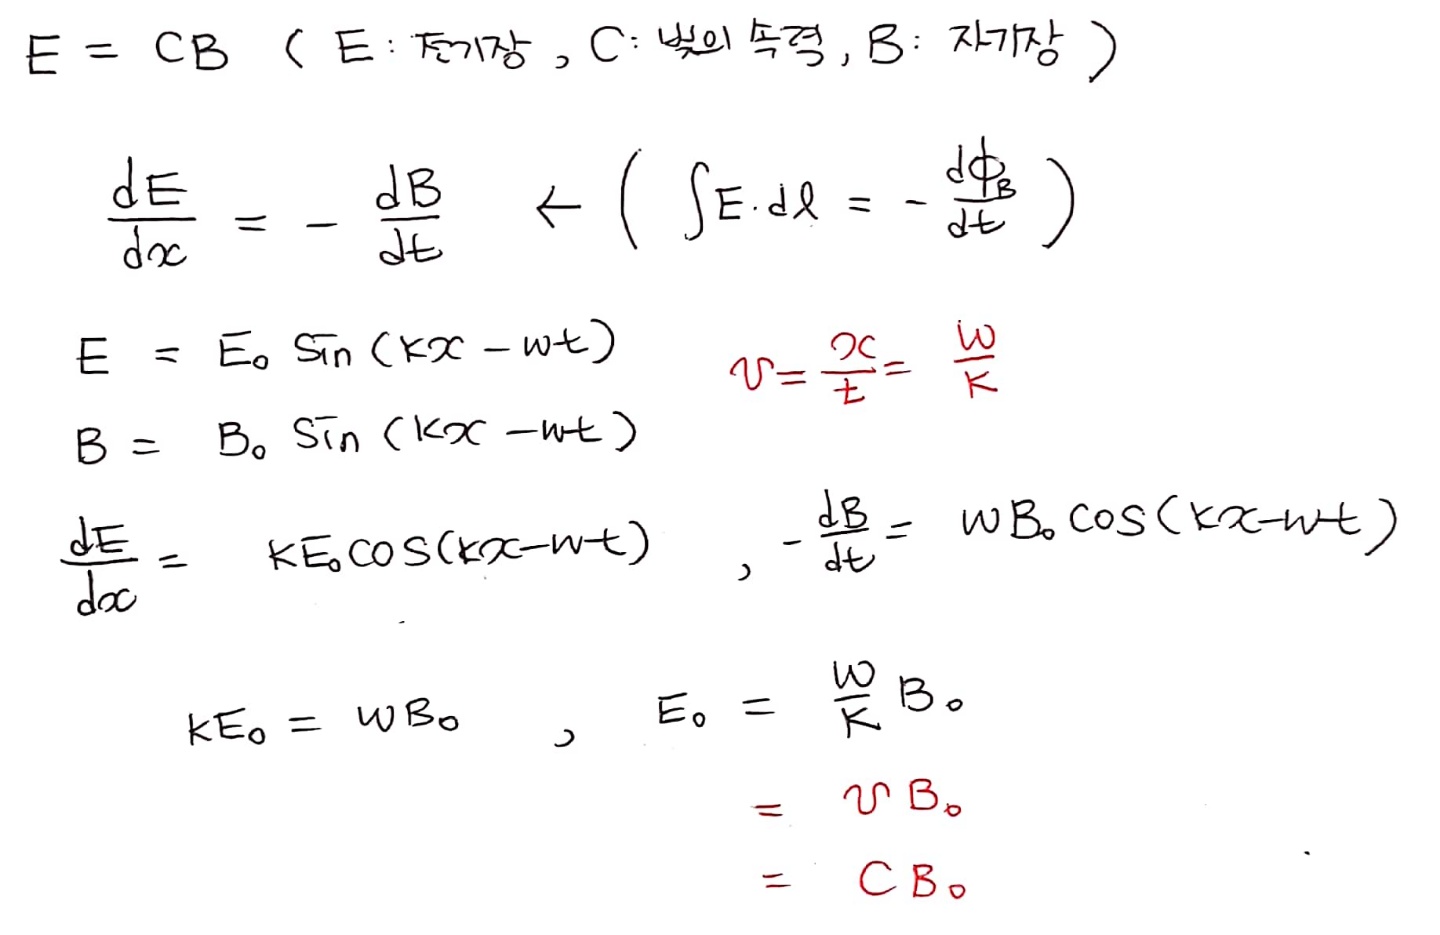 E = CB ( E: 전기장, C: 빛의 속력, B: 자기장 )
dE/dx = - dB/dt ← ( ∫E·dl = - dϕ_B/dt )
E = E₀ sin (kx - wt) v = x/t = w/k
B = B₀ sin (kx - wt)
dE/dx = kE₀cos(kx-wt) , - dB/dt = wB₀cos(kx-wt)
kE₀ = wB₀ , E₀ = w/k B₀
= v B₀
= C B₀